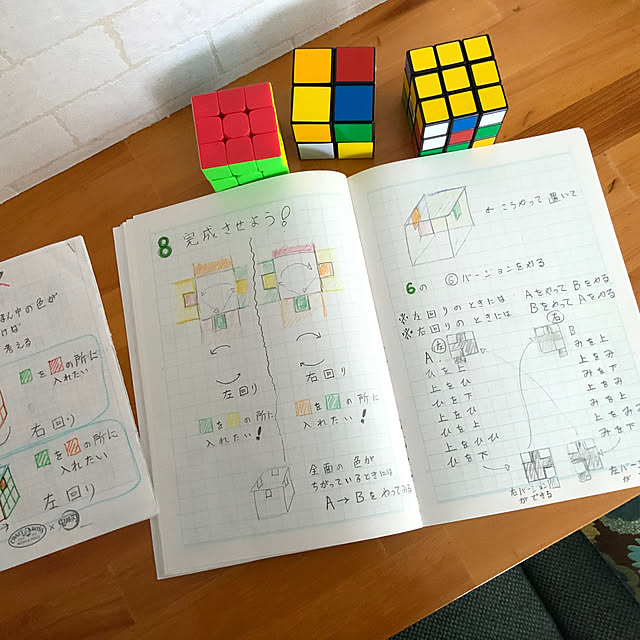 ん中の色が
けば
考える
を の所に
入れたい
右回り
を の所に
入れたい
左回り
8 完成させよう!
左回り
右回り
を の所に
入れたい!
を の所に
入れたい!
全面の色が
ちがっているときには
A→Bをやってみる
←こうやって置いて
6の ⑥バージョンをやる
※左回りのときには Aをやって Bをやる
※右回りのときには Bをやって Aをやる
A 左
右 B
ひを上
上をひ
ひを下
上をひ
ひを上
上をひひ
ひを下
みを上
上をみ
みを下
上をみ
みを上
上をみみ
みを下
左バージョン
ができる